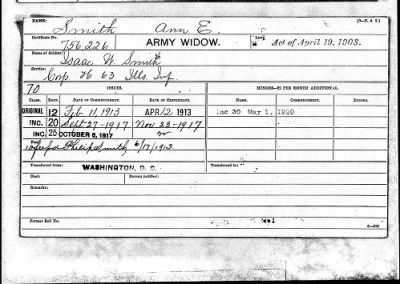 NAME: (3-T. A S.)
Smith Ann E.
Certificate No. 756,226 ARMY WIDOW. Law: Act of April 19, 1908.
Name of Soldier: Isaac W. Smith
Service: Corp H 63 Ills Inf
70 ISSUES. MINORS—$2 PER MONTH ADDITIONAL.
CLASS. RATE. DATE OF COMMENCEMENT. DATE OF CERTIFICATE. NAME. COMMENCING. ENDING.
ORIGINAL 12 Feb 11, 1913 APR 12 1913 Inc 30 May 1, 1920
INC. 20 Sept 27-1917 Nov 23-1917
INC. 25 OCTOBER 6, 1917 or
Philip Smith 6/17/1913
Transferred from: WASHINGTON, D. C. Transferred to:
Died: Bureau notified:
Remarks:
Former Roll No.